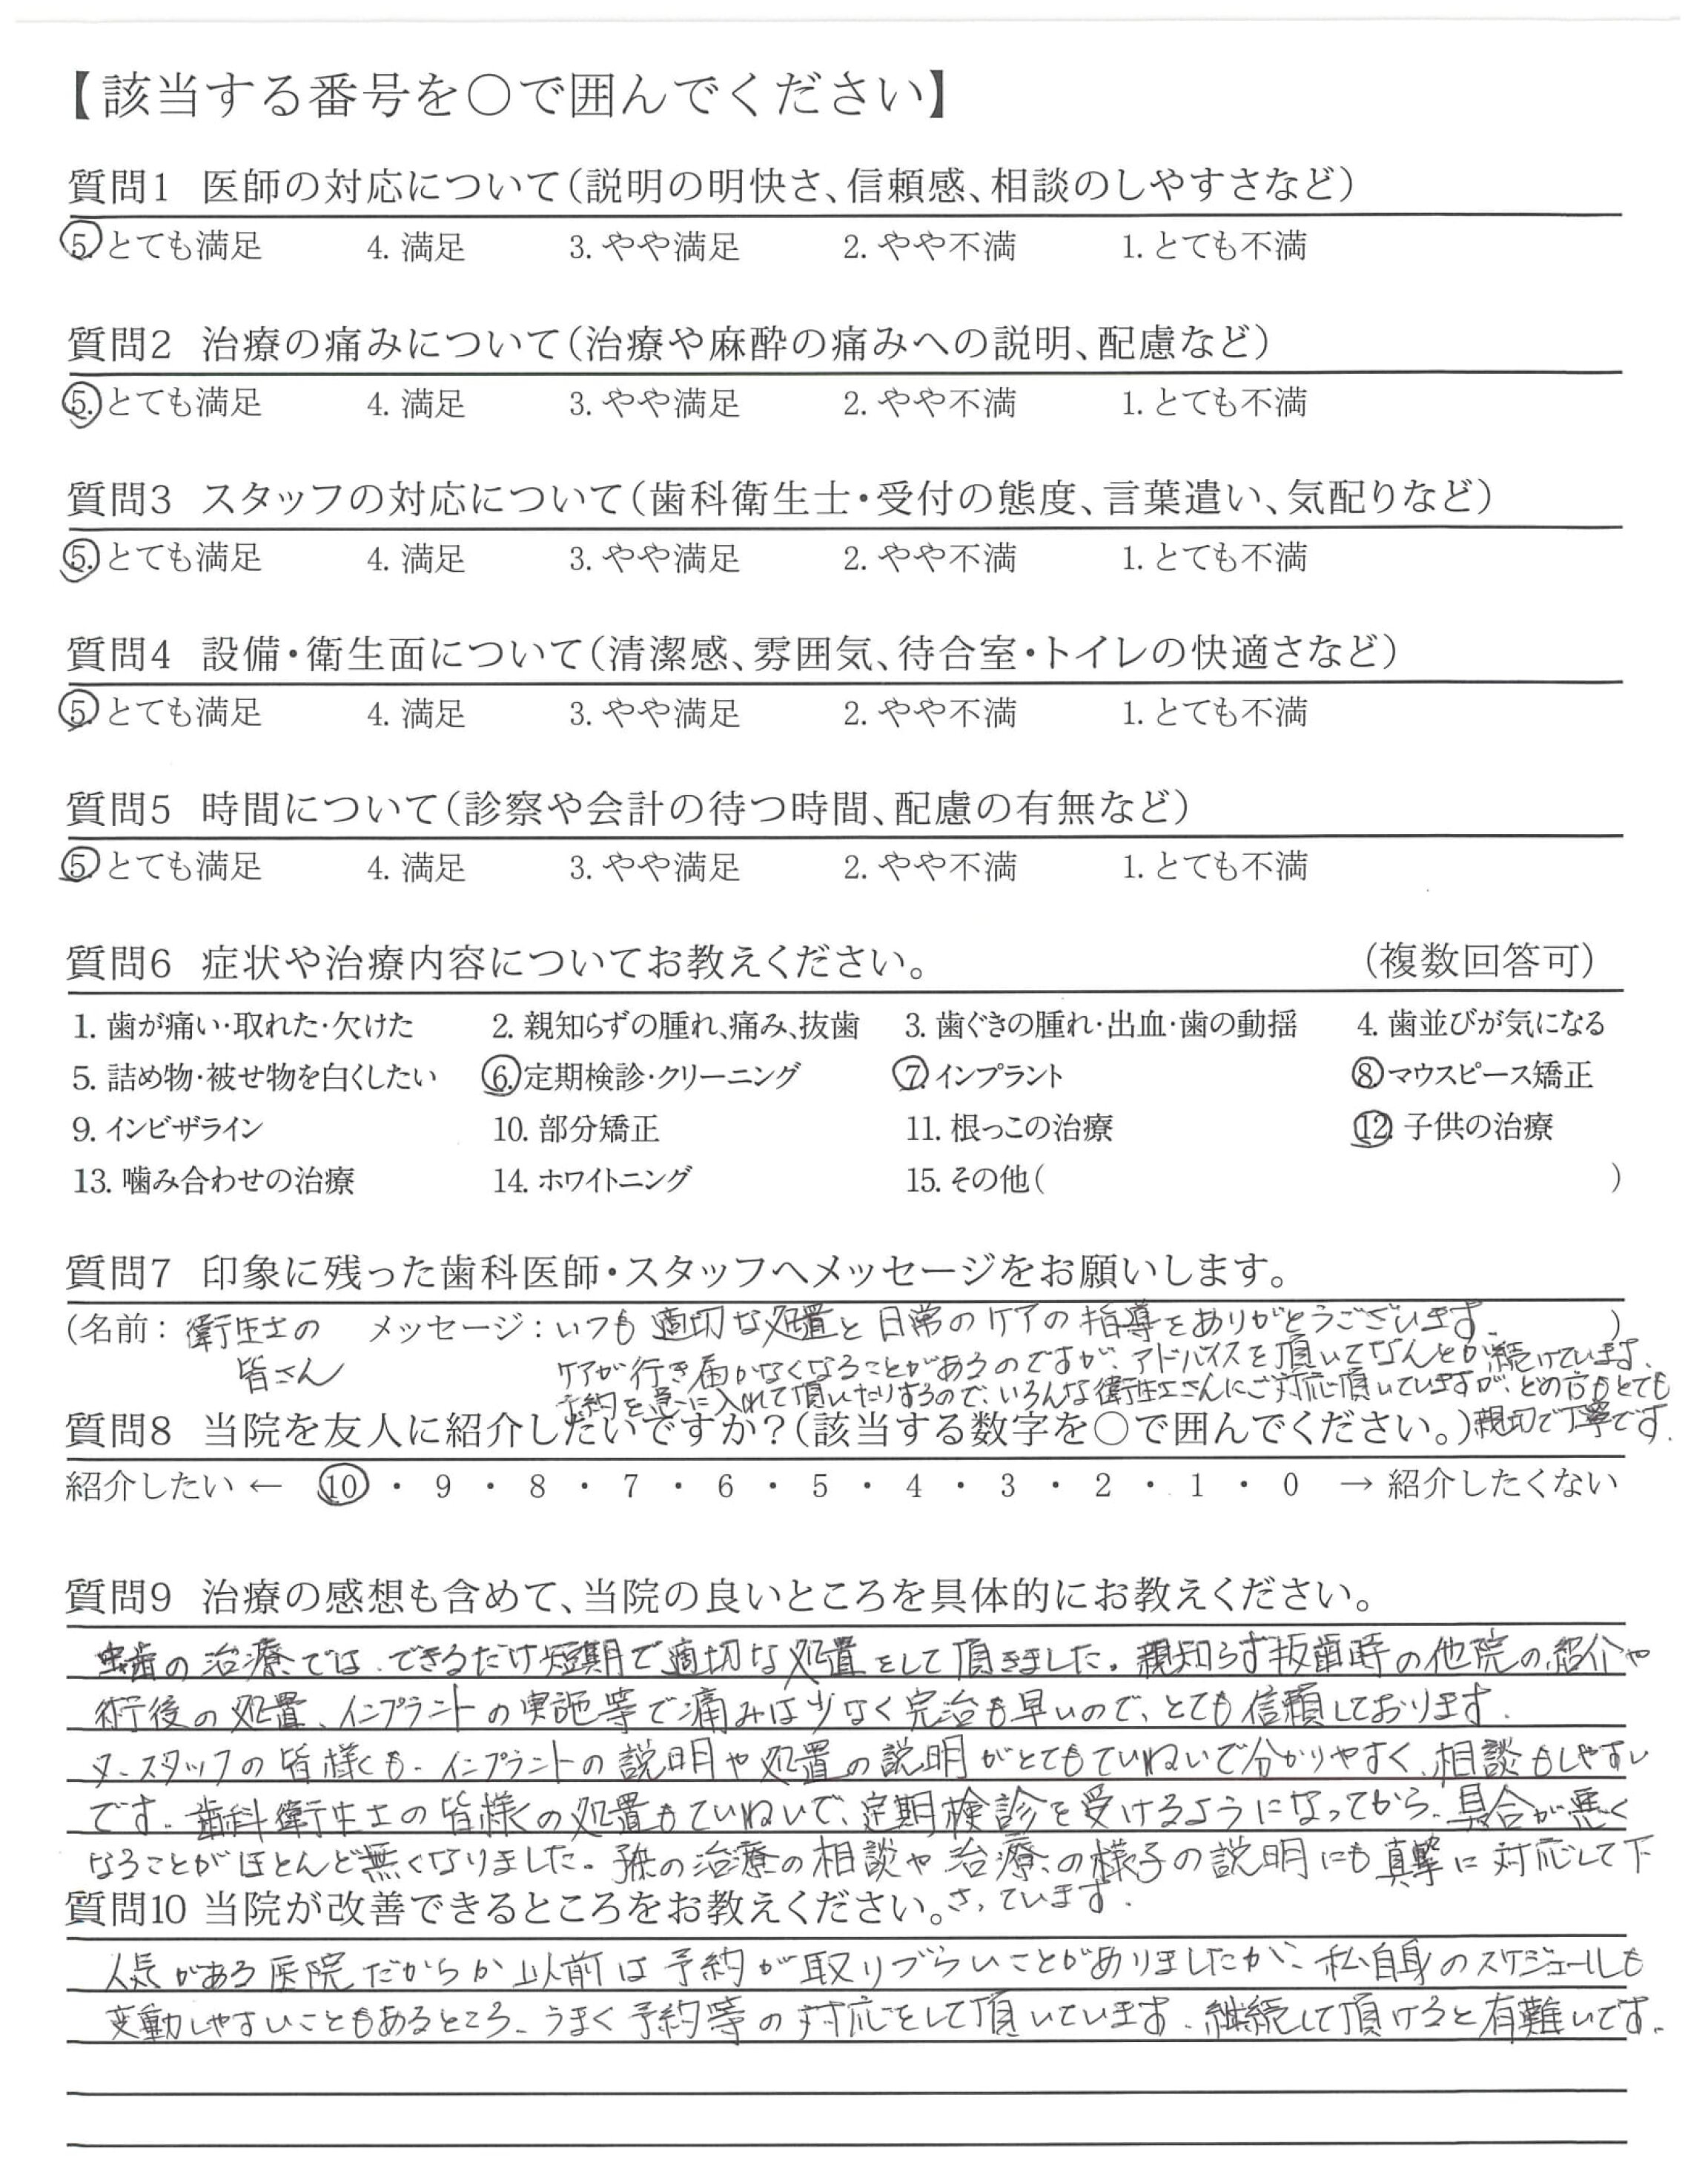 【該当する番号を○で囲んでください】
質問1 医師の対応について(説明の明快さ、信頼感、相談のしやすさなど)
5. とても満足 4. 満足 3. やや満足 2. やや不満 1. とても不満
質問2 治療の痛みについて(治療や麻酔の痛みへの説明、配慮など)
5. とても満足 4. 満足 3. やや満足 2. やや不満 1. とても不満
質問3 スタッフの対応について(歯科衛生士・受付の態度、言葉遣い、気配りなど)
5. とても満足 4. 満足 3. やや満足 2. やや不満 1. とても不満
質問4 設備・衛生面について(清潔感、雰囲気、待合室・トイレの快適さなど)
5. とても満足 4. 満足 3. やや満足 2. やや不満 1. とても不満
質問5 時間について(診察や会計の待つ時間、配慮の有無など)
5. とても満足 4. 満足 3. やや満足 2. やや不満 1. とても不満
質問6 症状や治療内容についてお教えください。 (複数回答可)
1. 歯が痛い・取れた・欠けた 2. 親知らずの腫れ、痛み、抜歯 3. 歯ぐきの腫れ・出血・歯の動揺 4. 歯並びが気になる
5. 詰め物・被せ物を白くしたい 6. 定期検診・クリーニング 7. インプラント 8. マウスピース矯正
9. インビザライン 10. 部分矯正 11. 根っこの治療 12. 子供の治療
13. 噛み合わせの治療 14. ホワイトニング 15. その他( )
質問7 印象に残った歯科医師・スタッフへメッセージをお願いします。
(名前: 衛生士の メッセージ: いつも適切な処置と日常のケアの指導をありがとうございます。 )
皆さん ケアが行き届かなくなることがあるのですが、アドバイスを頂いてなんとか続けています。
予約を急に入れて頂いたりするので、いろんな衛生士さんにご対応頂いていますが、どの方もとても
親切で丁寧です。
質問8 当院を友人に紹介したいですか?(該当する数字を○で囲んでください。)
紹介したい ← 10 ・ 9 ・ 8 ・ 7 ・ 6 ・ 5 ・ 4 ・ 3 ・ 2 ・ 1 ・ 0 → 紹介したくない
質問9 治療の感想も含めて、当院の良いところを具体的にお教えください。
虫歯の治療では、できるだけ短期で適切な処置をして頂きました。親知らず抜歯時の他院の紹介や
術後の処置、インプラントの実施等で痛みは少なく完治も早いので、とても信頼しております。
又、スタッフの皆様も、インプラントの説明や処置の説明がとてもていねいで分かりやすく、相談もしやすい
です。歯科衛生士の皆様の処置もていねいで、定期検診を受けるようになってから、具合が悪く
なることがほとんど無くなりました。孫の治療の相談や治療の様子の説明にも真摯に対応して下
さっています。
質問10 当院が改善できるところをお教えください。
人気がある医院だからか以前は予約が取りづらいことがありましたが、私自身のスケジュールも
変動しやすいこともあるところ、うまく予約等の対応をして頂いています。継続して頂けると有難いです。